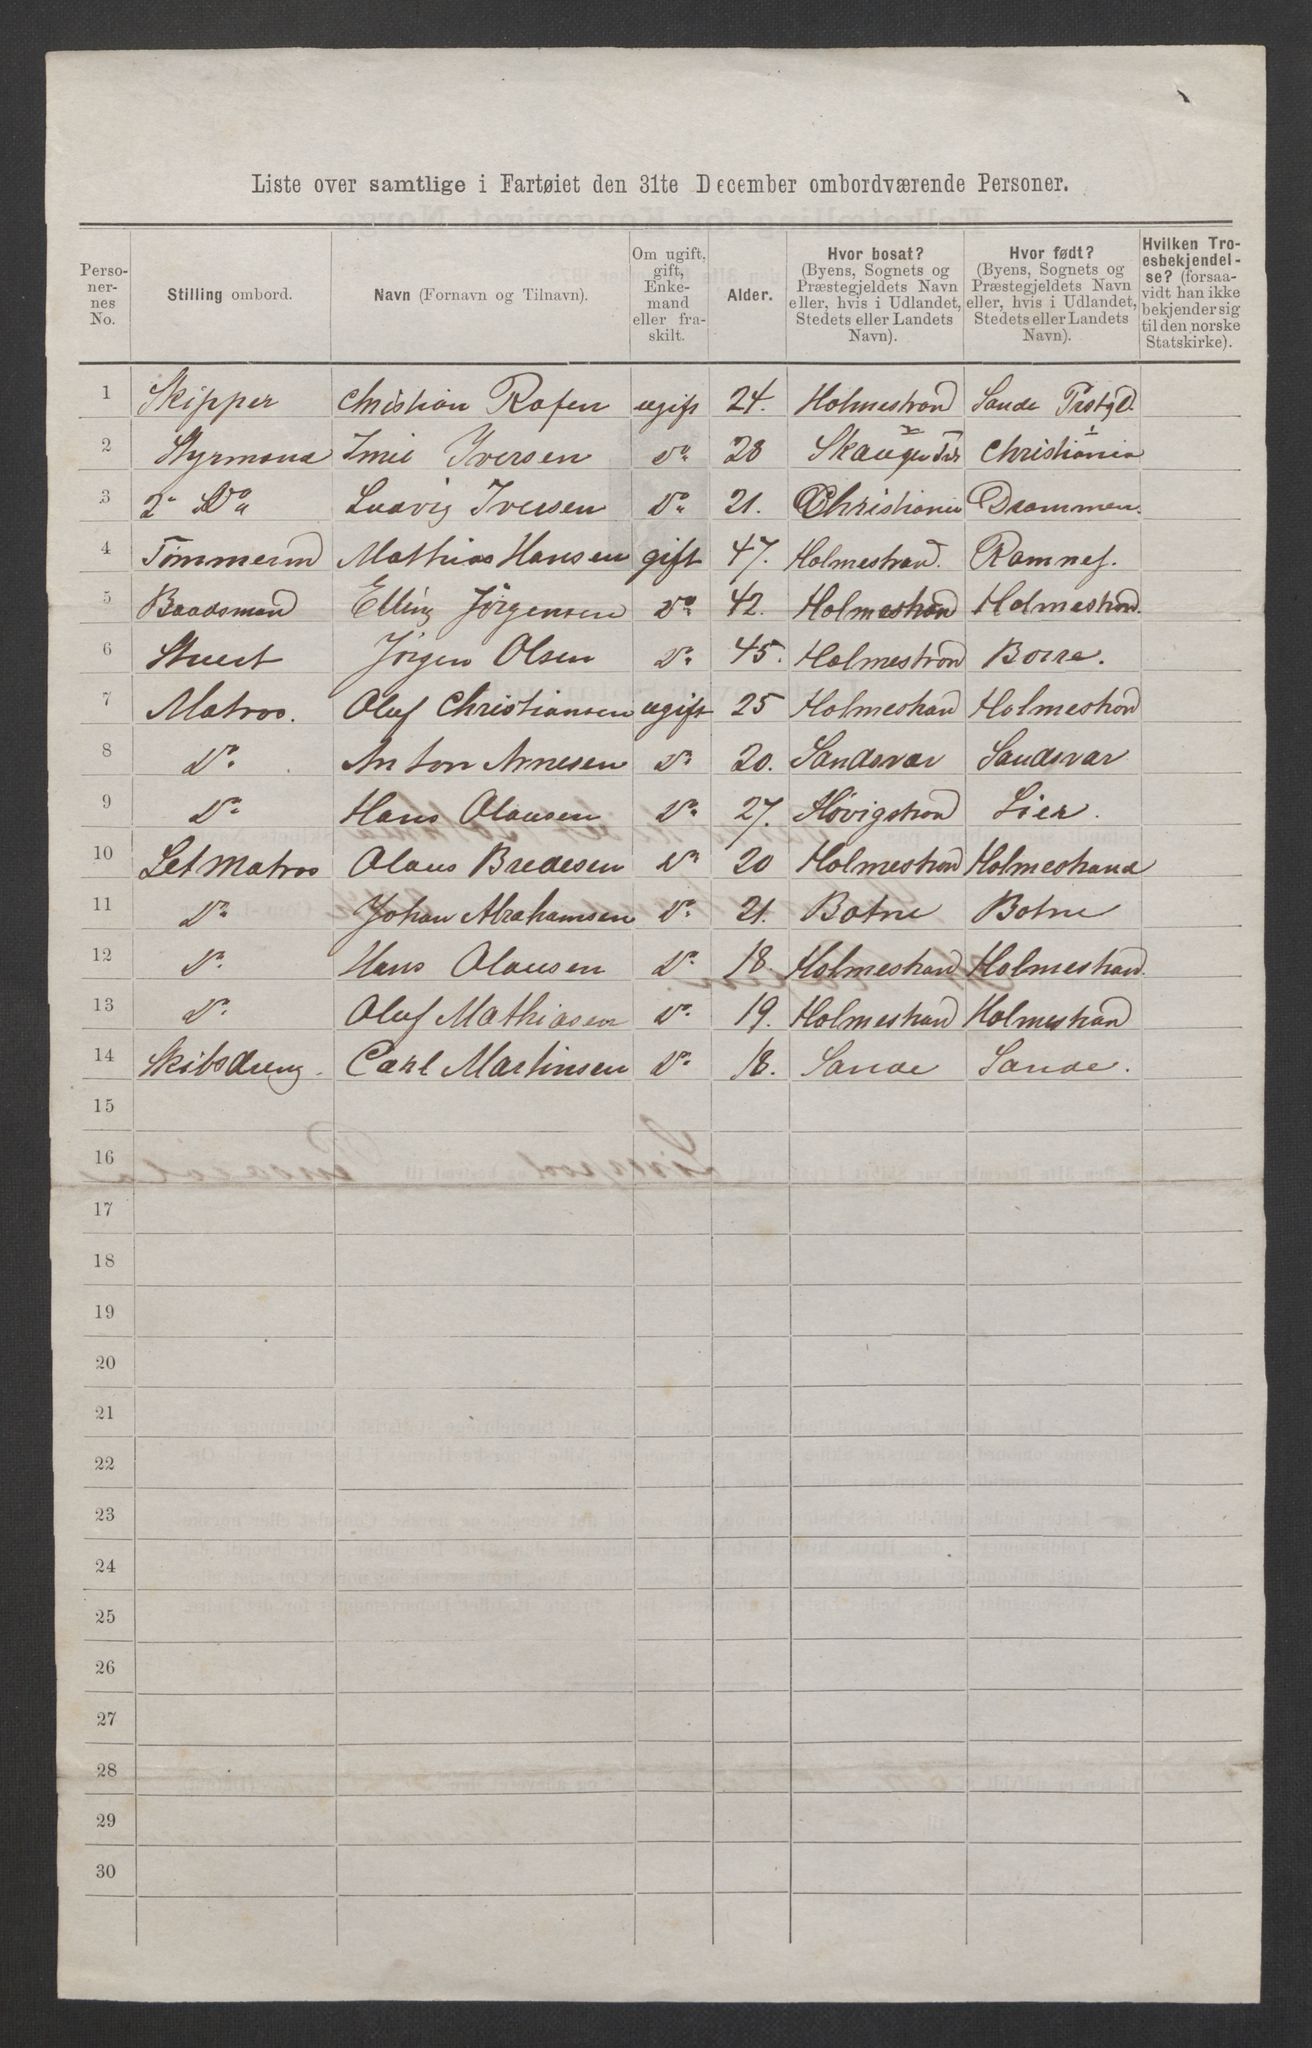 Liste over samtlige i Fartøiet den 31te December ombordværende Personer.
Perso-
ner-
nes
No.
Stilling ombord.
Navn (Fornavn og Tilnavn).
Om ugift,
gift,
Enke-
mand
eller fra-
skilt.
Alder.
Hvor bosat?
(Byens, Sognets og
Præstegjeldets Navn
eller, hvis i Udlandet,
Stedets eller Landets
Navn).
Hvor født?
(Byens, Sognets og
Præstegjeldets Navn
eller, hvis i Udlandet,
Stedets eller Landets
Navn).
Hvilken Tro-
esbekjendel-
se? (forsaa-
vidt han ikke
bekjender sig
til den norske
Statskirke).
1 Skipper Christian Rafen ugift 24. Holmestrand Sande
2 Styrmand Imil Iversen Do 28 Christiania
3 2 Do Ludvig Iversen Do 21. Christiania Drammen.
4 Tømmermd Mathias Hansen gift 47. Holmestrand. Ramnes.
5 Baadsmand Elling Jörgensen Do 42. Holmestrand Holmestrand.
6 Stuert Jörgen Olsen Do 45. Holmestrand Borre.
7 Matros. Oluf Christiansen ugift 25 Holmestrand Holmestrand
8 Do Anton Arnesen Do 20. Sandsvær Sandsvær
9 Do Hans Olausen Do 27. Hövigstrand Lier.
10 Let Matros Olaus Bredesen Do 20 Holmestrand Holmestrand
11 Do Johan Abrahamsen Do 21. Botne Botne
12 Do Hans Olausen Do 18. Holmestrand Holmestrand.
13 Do Oluf Mathiasen Do 19. Holmestrand Holmestrand
14 Skibsdreng. Carl Martinsen Do 18. Sande Sande.
15
16
17
18
19
20
21
22
23
24
25
26
27
28
29
30